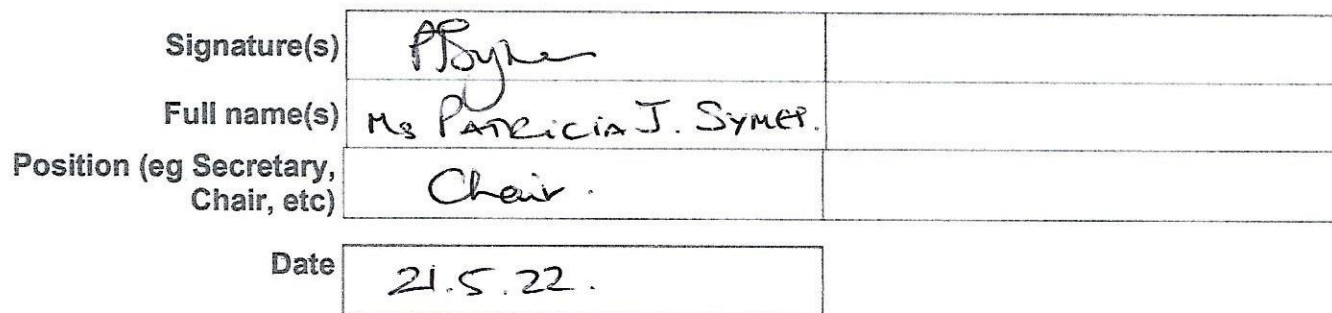 Signature(s)
Full name(s) Ms PATRICIA J. SYMES.
Position (eg Secretary,
Chair, etc) Chair.
Date 21.5.22.